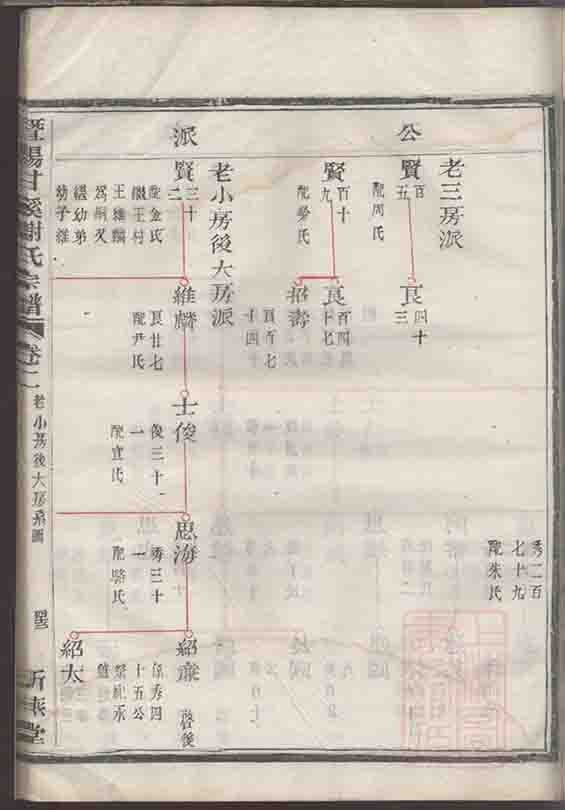 公
派
老三房派
賢
百
五
配周氏
艮
四十
三
賢
百十
九
配勞氏
艮
百四
十七
招壽
百五七
十四十
秀二百
七十九
配朱氏
老小房後大房派
賢二
三十
配金氏
王村
王維麟
爲嗣又
繼幼弟
幼子維
維麟
艮廿七
配尹氏
士俊
俊三十
一
配宣氏
思海
秀三十
一
配駱氏
紹廉
啓後
十五公
紹太
暨陽甘溪謝氏宗譜
卷二
老小房後大房系圖